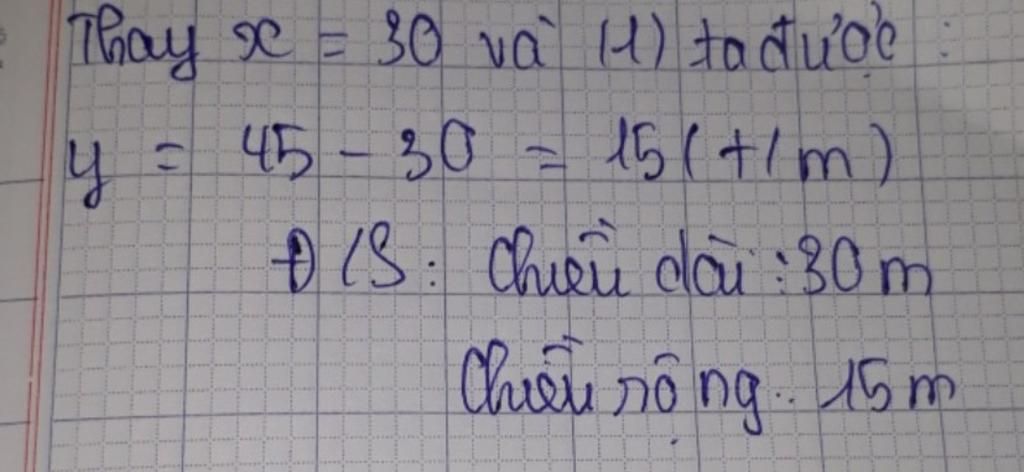 Thay x = 30 và (1) ta được :
y = 45 - 30 = 15 (t/m)
Đ/S: Chiều dài : 30 m
Chiều rộng : 15 m